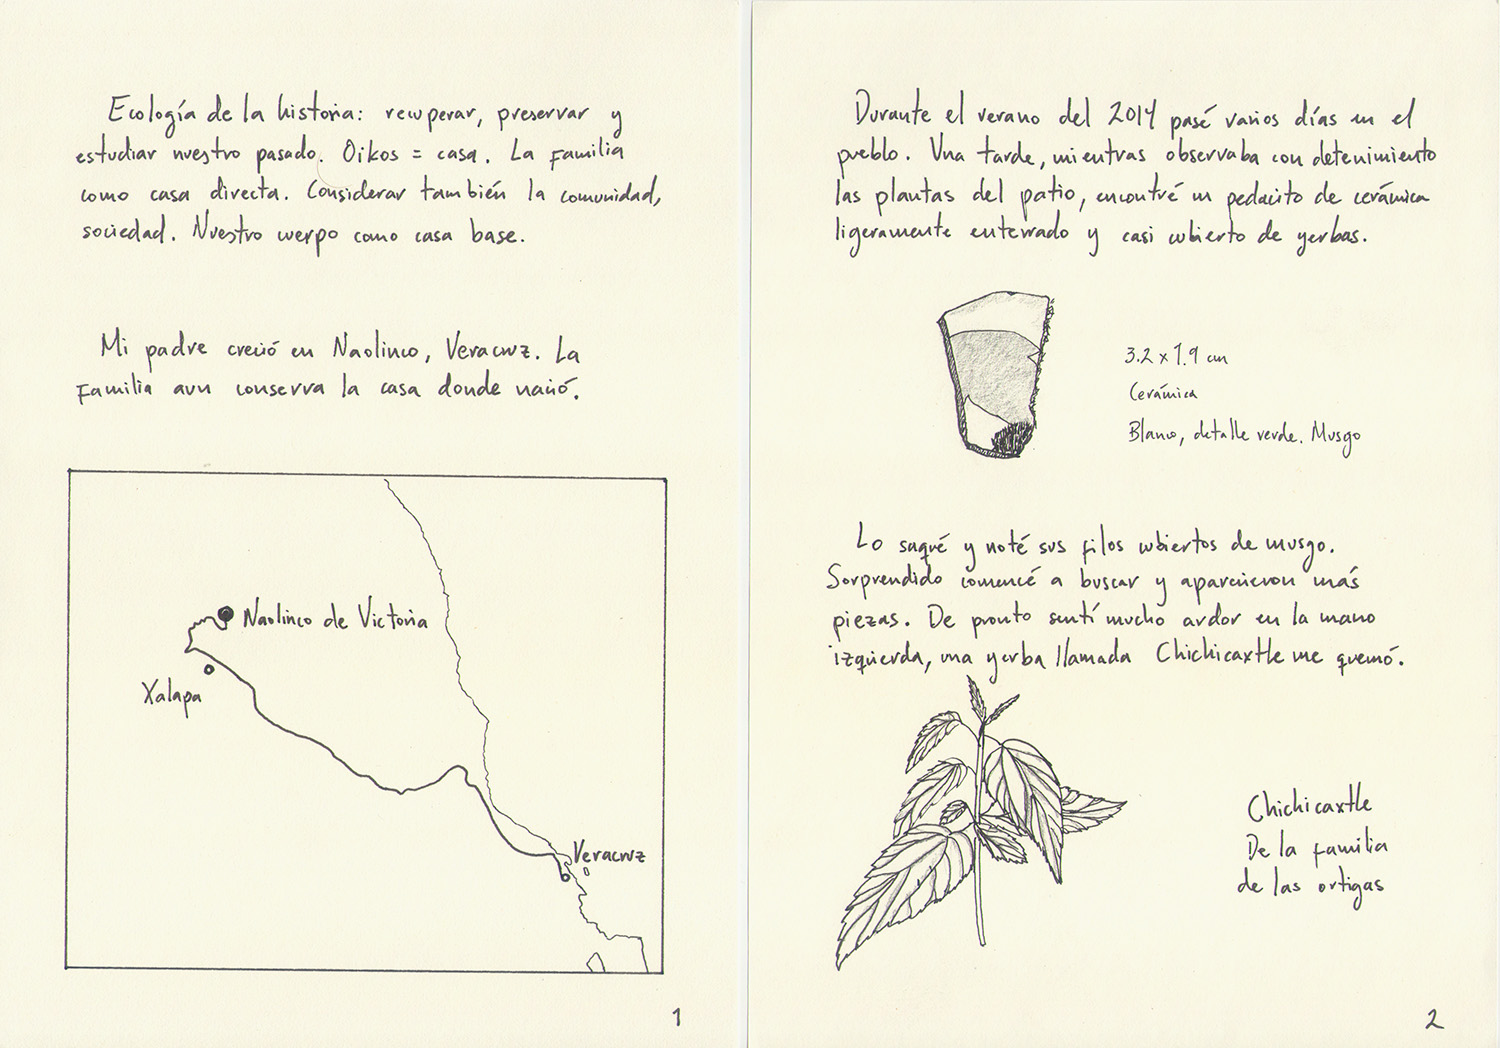 Ecología de la historia: recuperar, preservar y
estudiar nuestro pasado. Oikos = casa. La familia
como casa directa. Considerar también la comunidad,
sociedad. Nuestro cuerpo como casa base.
Mi padre creció en Naolinco, Veracruz. La
familia aun conserva la casa donde nació.
Naolinco de Victoria
Xalapa
Veracruz
1
Durante el verano del 2014 pasé varios días en el
pueblo. Una tarde, mientras observaba con detenimiento
las plantas del patio, encontré un pedacito de cerámica
ligeramente enterrado y casi cubierto de yerbas.
3.2 x 1.9 cm
Cerámica
Blanco, detalle verde. Musgo
Lo saqué y noté sus filos cubiertos de musgo.
Sorprendido comencé a buscar y aparecieron más
piezas. De pronto sentí mucho ardor en la mano
izquierda, una yerba llamada Chichicaxtle me quemó.
Chichicaxtle
De la familia
de las ortigas
2